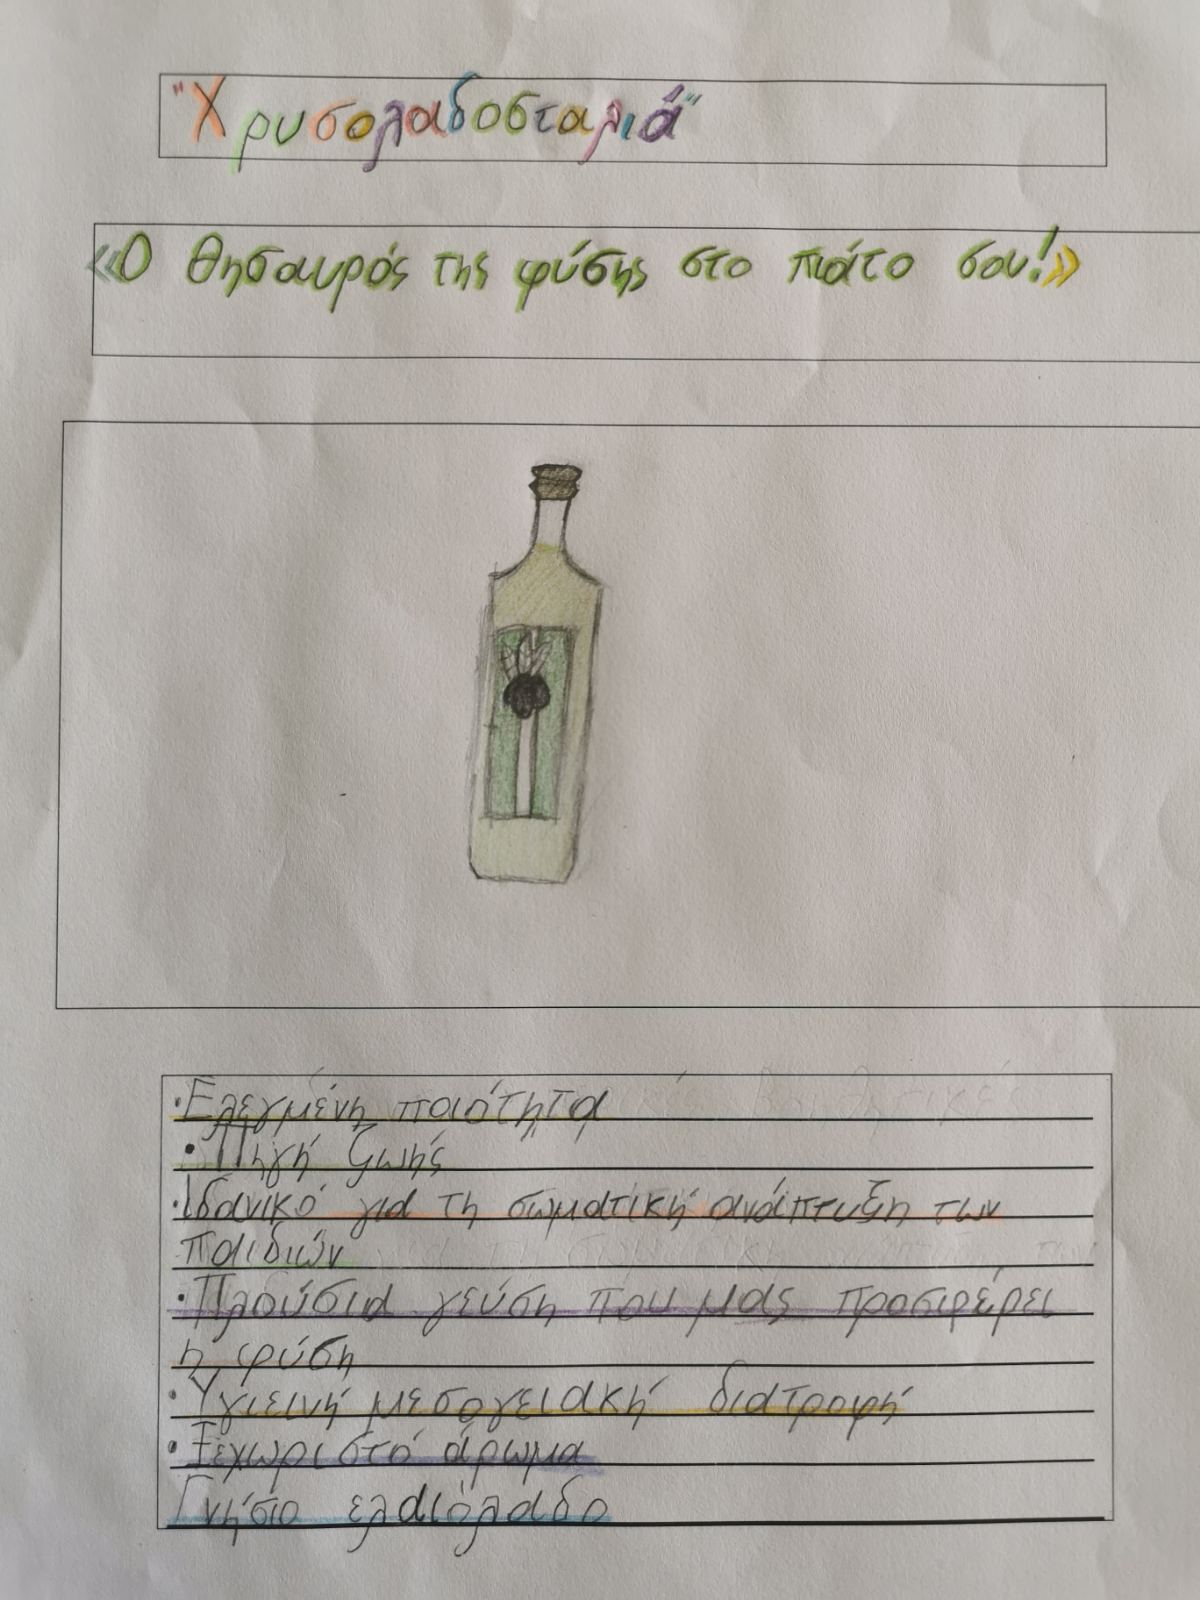 "Χρυσολαδοσταλιά"
«Ο θησαυρός της φύσης στο πιάτο σου!»
·Ελεγμένη ποιότητα
·Πηγή ζωής
·Ιδανικό για τη σωματική ανάπτυξη των
παιδιών
·Πλούσια γεύση που μας προσφέρει
η φύση
·Υγιεινή μεσογειακή διατροφή
·Ξεχωριστό άρωμα
Γνήσιο ελαιόλαδο